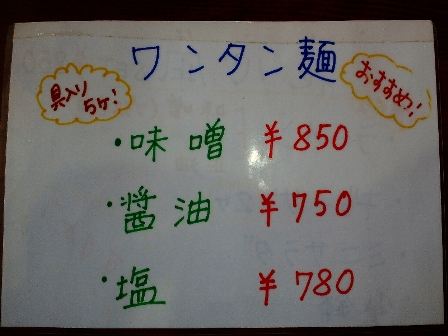 ワンタン麺
具入り
5ヶ!
おすすめ!
・味噌 ¥850
・醤油 ¥750
・塩 ¥780